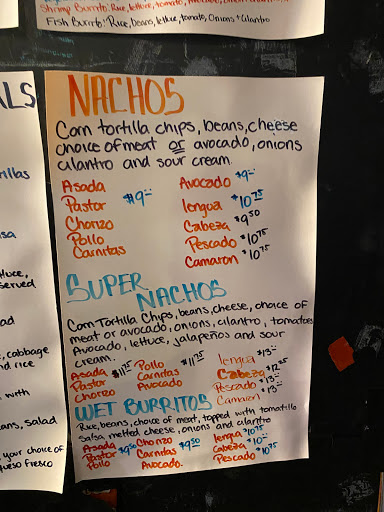 Shrimp Burrito: Rice, lettuce, tomato,
Fish Burrito: Rice, beans, lettuce, tomato, Onions + Cilantro
ALS
illas
lsa
ttuce,
served
ad
, cabbage
nd rice
with
ans, salad
your choice of
queso fresco
NACHOS
Corn tortilla chips, beans, cheese
choice of meat or avocado, onions
cilantro and sour cream.
Asada
Pastor
Chorizo
Pollo
Carnitas
$9.--
Avocado $9.--
lengua $10.75
Cabeza $9.50
Pescado $10.75
Camaron $10.75
SUPER
NACHOS
Corn Tortilla Chips, beans, cheese, choice of
meat or avocado, onions, cilantro, tomatoes
Avocado, lettuce, jalapeños and sour
cream.
Asada
Pastor
Chorizo
$11.75
Pollo
Carnitas
Avocado
$11.75
lengua $13.--
Cabeza $12.25
Pescado $13.--
Camaron $13.--
WET BURRITOS
Rice, beans, choice of meat, topped with tomatillo
Salsa, melted cheese, onions and cilantro
Asada
Pastor
Pollo
$9.50
Chorizo
Carnitas
Avocado.
$9.50
lengua $10.75
Cabeza $10.--
Pescado $10.75